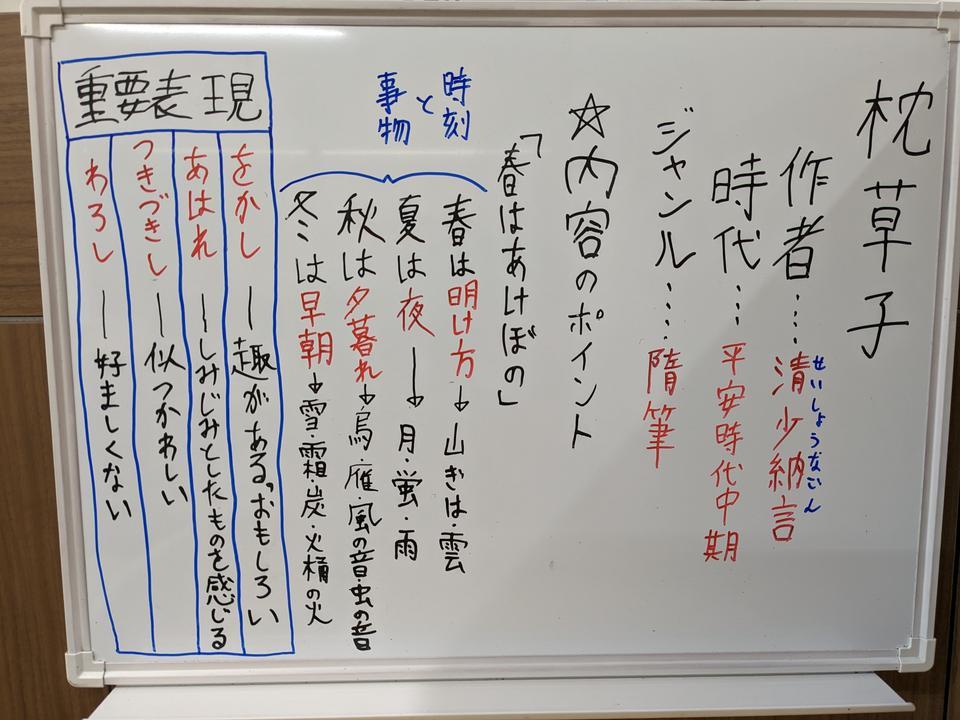 枕草子
作者…清少納言
せいしょうなごん
時代…平安時代中期
ジャンル…隋筆
☆内容のポイント
「春はあけぼの」
時刻
と
事物
春は明け方→山ぎは・雲
夏は夜→月・蛍・雨
秋は夕暮れ→烏・雁・風の音・虫の音
冬は早朝→雪・霜・炭・火桶の火
重要表現
をかし―趣がある。おもしろい
あはれ―しみじみとしたものを感じる
つきづきし―似つかわしい
わろし―好ましくない